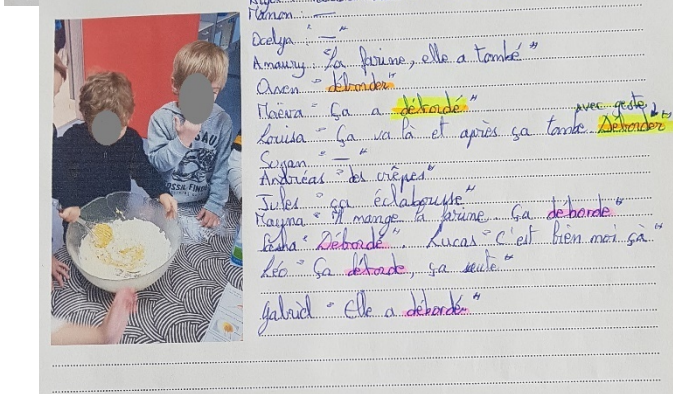 Manon : " — "
Ocelya : " — "
Amaury : "La farine, elle a tombé"
Owen "déborder"
Maëva "Ça a débordé"
avec geste
Louisa "Ça va là et après ça tombe. Déborder"
Suzan " — "
Andréas "des crêpes"
Jules "ça éclabousse"
Mayna "Il mange la farine. Ça deborde"
Sasha "Débordé". Lucas "C'est bien moi çà"
Léo "Ça déborde, ça saute"
Gabriel "Elle a débordé"
OSSIL FINE